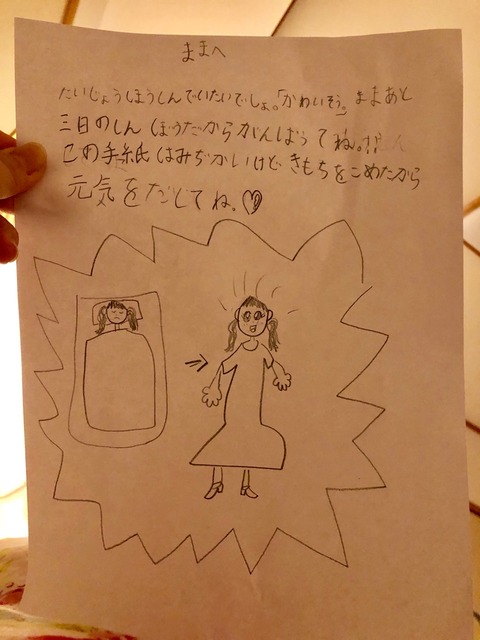 ままへ
たいじょうしほうしんでいたいでしょ。「かわいそう」ままあと
三日のしんぼうだからがんばってね。
この手紙はみぢかいけどきもちをこめたから
元気をだしてね。